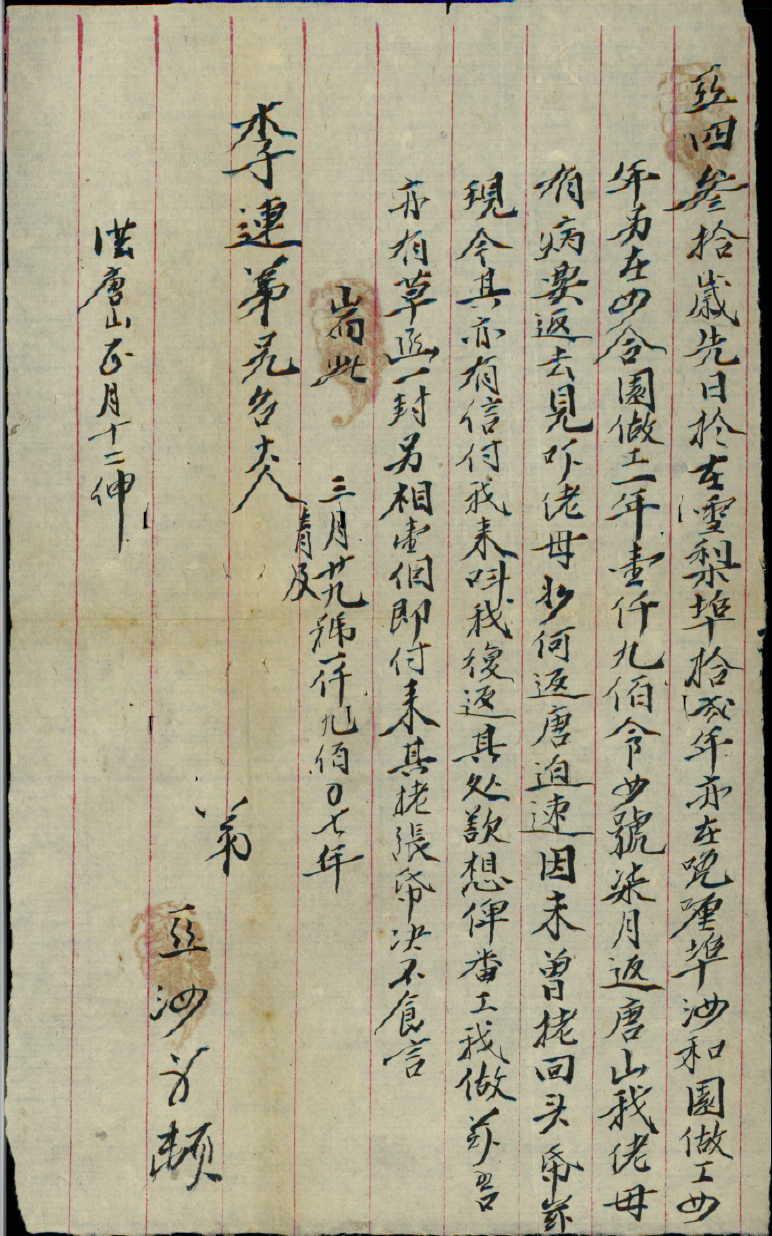 亞四叁拾歲先日於在雪梨埠拾弍年亦在呍喱埠沙和園做工四
年另在四合園做工一年壹仟九佰令四號柒月返唐山我佬母
有病要返去見吓佬母如何返唐迫速因未曾拢回头帋茲
現今其亦有信付我来呌我復返其处歀想俾番工我做茲呂
亦有草函一封另相壹個即付来其拢張帋决不食言
耑此
三月廿九號一仟九佰0七年
李連第兄台大人
青及
弟
亞沙 頓
唐山正月十二伸